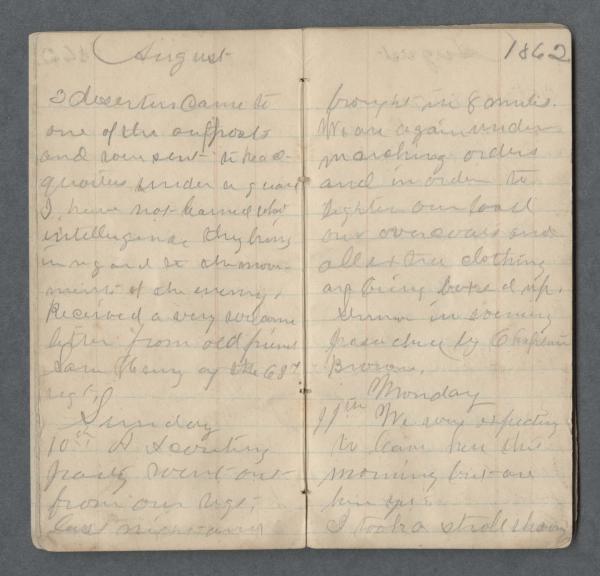 August
3 deserters came to
one of the outposts
and were sent to head-
quarters under a guard
I have not learned what
intelligence they bring
in regard to the move-
ments of the enemy.
Received a very welcome
letter from old friend
Sam Henry of the 63d
regt.
Sunday
10th A scouting
party went out
from our regt.
last night and
1862
brought in 8 mules.
We are again under
marching orders
and in order to
lighten our load
our overcoats and
all extra clothing
are being boxed up.
Sermon in evening
preached by Chaplain
Brown.
Monday
11th We were expecting
to leave here this
morning but are
here yet.
I took a stroll